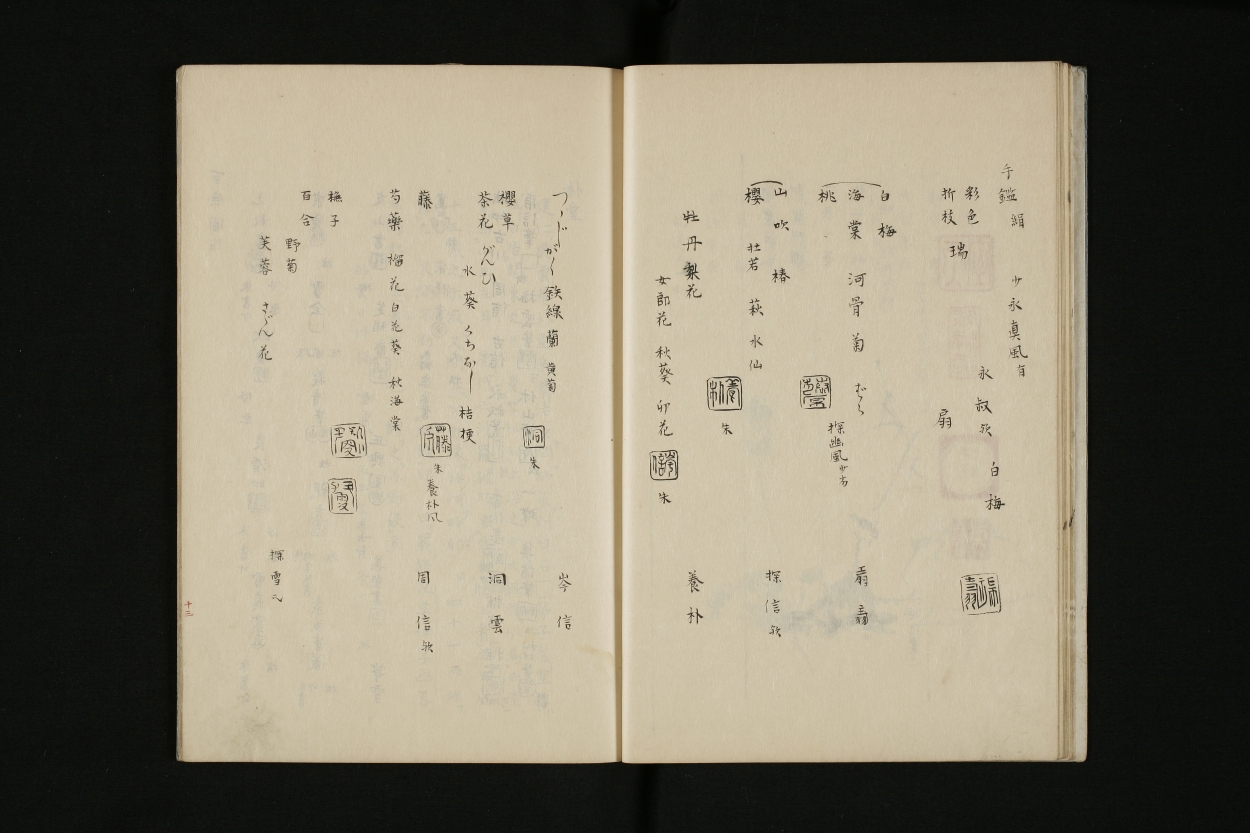 手鑑絹
少永真風有
彩色
折枝
瑞
永叔欤
扇
白梅
白梅
海棠 河骨 菊
桃
探幽風少有
扇
山吹 椿
櫻 杜若 萩 水仙
朱
探信欤
牡丹 梨花
女郎花 秋葵 卯花
朱
養朴
つゝじ がく 鉄線 蘭 黄菊
洞
朱
岑信
櫻草
茶花 がんひ
水葵 くちなし 桔梗
洞雲
藤
藤
朱
養朴風
周信欤
芍薬 榴花 白花葵 秋海棠
撫子
百合
野菊
芙蓉 さゞん花
探雪
十三